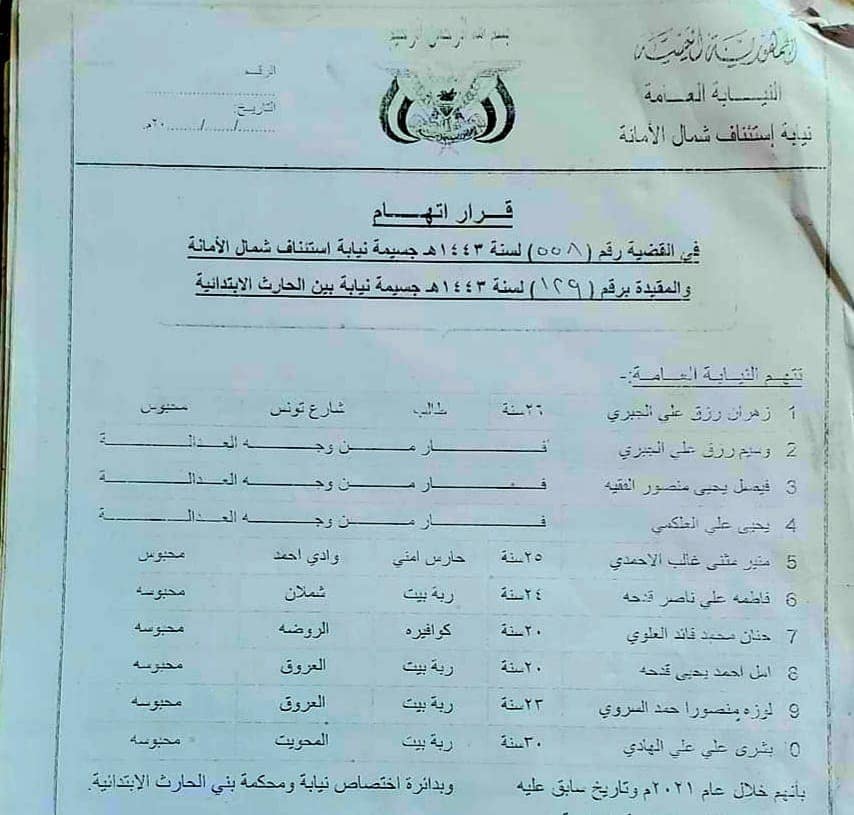 بسم الله الرحمن الرحيم
الجمهورية اليمنية
النيابة العامة
نيابة إستئناف شمال الأمانة
الرقم
التاريخ: ....../....../......٢٠م
قرار اتهام
في القضية رقم (٥٥٨) لسنة ١٤٤٣هـ جسيمة نيابة استئناف شمال الأمانة
والمقيدة برقم (١٢٩) لسنة ١٤٤٣هـ جسيمة نيابة بين الحارث الابتدائية
تتهم النيابة العامة:-
1 زهران رزق علي الجبري ٢٦سنة طالب شارع تونس محبوس
2 وسيم رزق علي الجبري فار من وجه العدالة
3 فيصل يحيى منصور الفقيه فار من وجه العدالة
4 يحيى علي فار من وجه العدالة
5 منير مثنى غالب الاحمدي ٢٥سنة حارس امني وادي احمد محبوس
6 فاطمه علي ناصر قدحه ٢٤سنة ربة بيت شملان محبوسه
7 حنان محمد قائد العلوي ٢٠سنة كوافيره الروضه محبوسه
8 امل احمد يحيى قدحه ٢٠سنة ربة بيت العروق محبوسه
9 لوزه منصورا حمد السروي ٢٣سنة ربة بيت العروق محبوسه
0 بشرى علي علي الهادي ٣٠سنة ربة بيت المحويت محبوسه
بأنهم خلال عام ٢٠٢١م وتاريخ سابق عليه وبدائرة اختصاص نيابة ومحكمة بني الحارث الابتدائية.